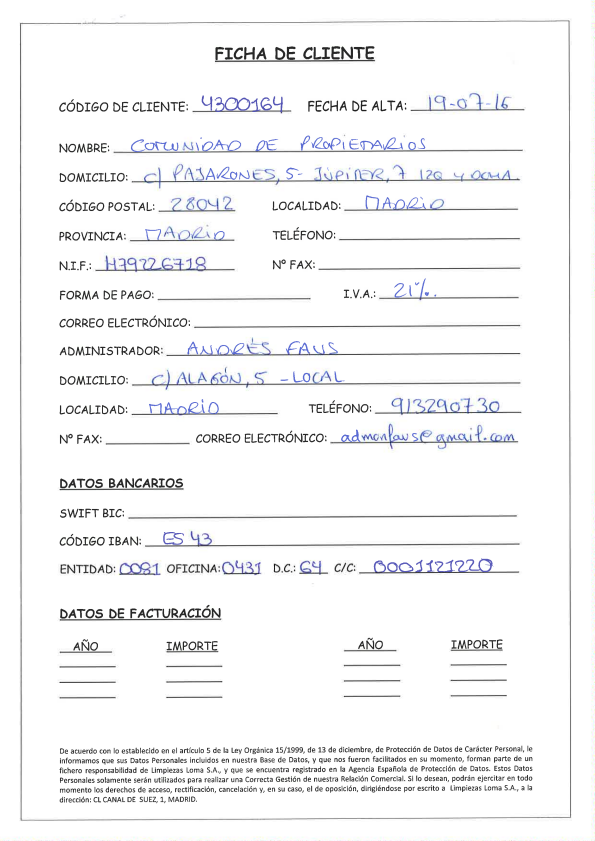 FICHA DE CLIENTE
CÓDIGO DE CLIENTE: 4300164 FECHA DE ALTA: 19-07-16
NOMBRE: COMUNIDAD DE PROPIETARIOS
DOMICILIO: C/ PAJARONES, 5- JÚPITER, 7 IZQ Y DCHA.
CÓDIGO POSTAL: 28042 LOCALIDAD: MADRID
PROVINCIA: MADRID TELÉFONO:
N.I.F.: H79226718 Nº FAX:
FORMA DE PAGO: I.V.A.: 21%.
CORREO ELECTRÓNICO:
ADMINISTRADOR: ANDRÉS FAUS
DOMICILIO: C/ ALAGÓN, 5 - LOCAL
LOCALIDAD: MADRID TELÉFONO: 913290730
Nº FAX: CORREO ELECTRÓNICO: admonfaus@gmail.com
DATOS BANCARIOS
SWIFT BIC:
CÓDIGO IBAN: ES 43
ENTIDAD: 0081 OFICINA: 0431 D.C.: 64 C/C: 0001121220
DATOS DE FACTURACIÓN
AÑO IMPORTE AÑO IMPORTE
De acuerdo con lo establecido en el artículo 5 de la Ley Orgánica 15/1999, de 13 de diciembre, de Protección de Datos de Carácter Personal, le
informamos que sus Datos Personales incluidos en nuestra Base de Datos, y que nos fueron facilitados en su momento, forman parte de un
fichero responsabilidad de Limpiezas Loma S.A., y que se encuentra registrado en la Agencia Española de Protección de Datos. Estos Datos
Personales solamente serán utilizados para realizar una Correcta Gestión de nuestra Relación Comercial. Si lo desean, podrán ejercitar en todo
momento los derechos de acceso, rectificación, cancelación y, en su caso, el de oposición, dirigiéndose por escrito a Limpiezas Loma S.A., a la
dirección: CL CANAL DE SUEZ, 1, MADRID.